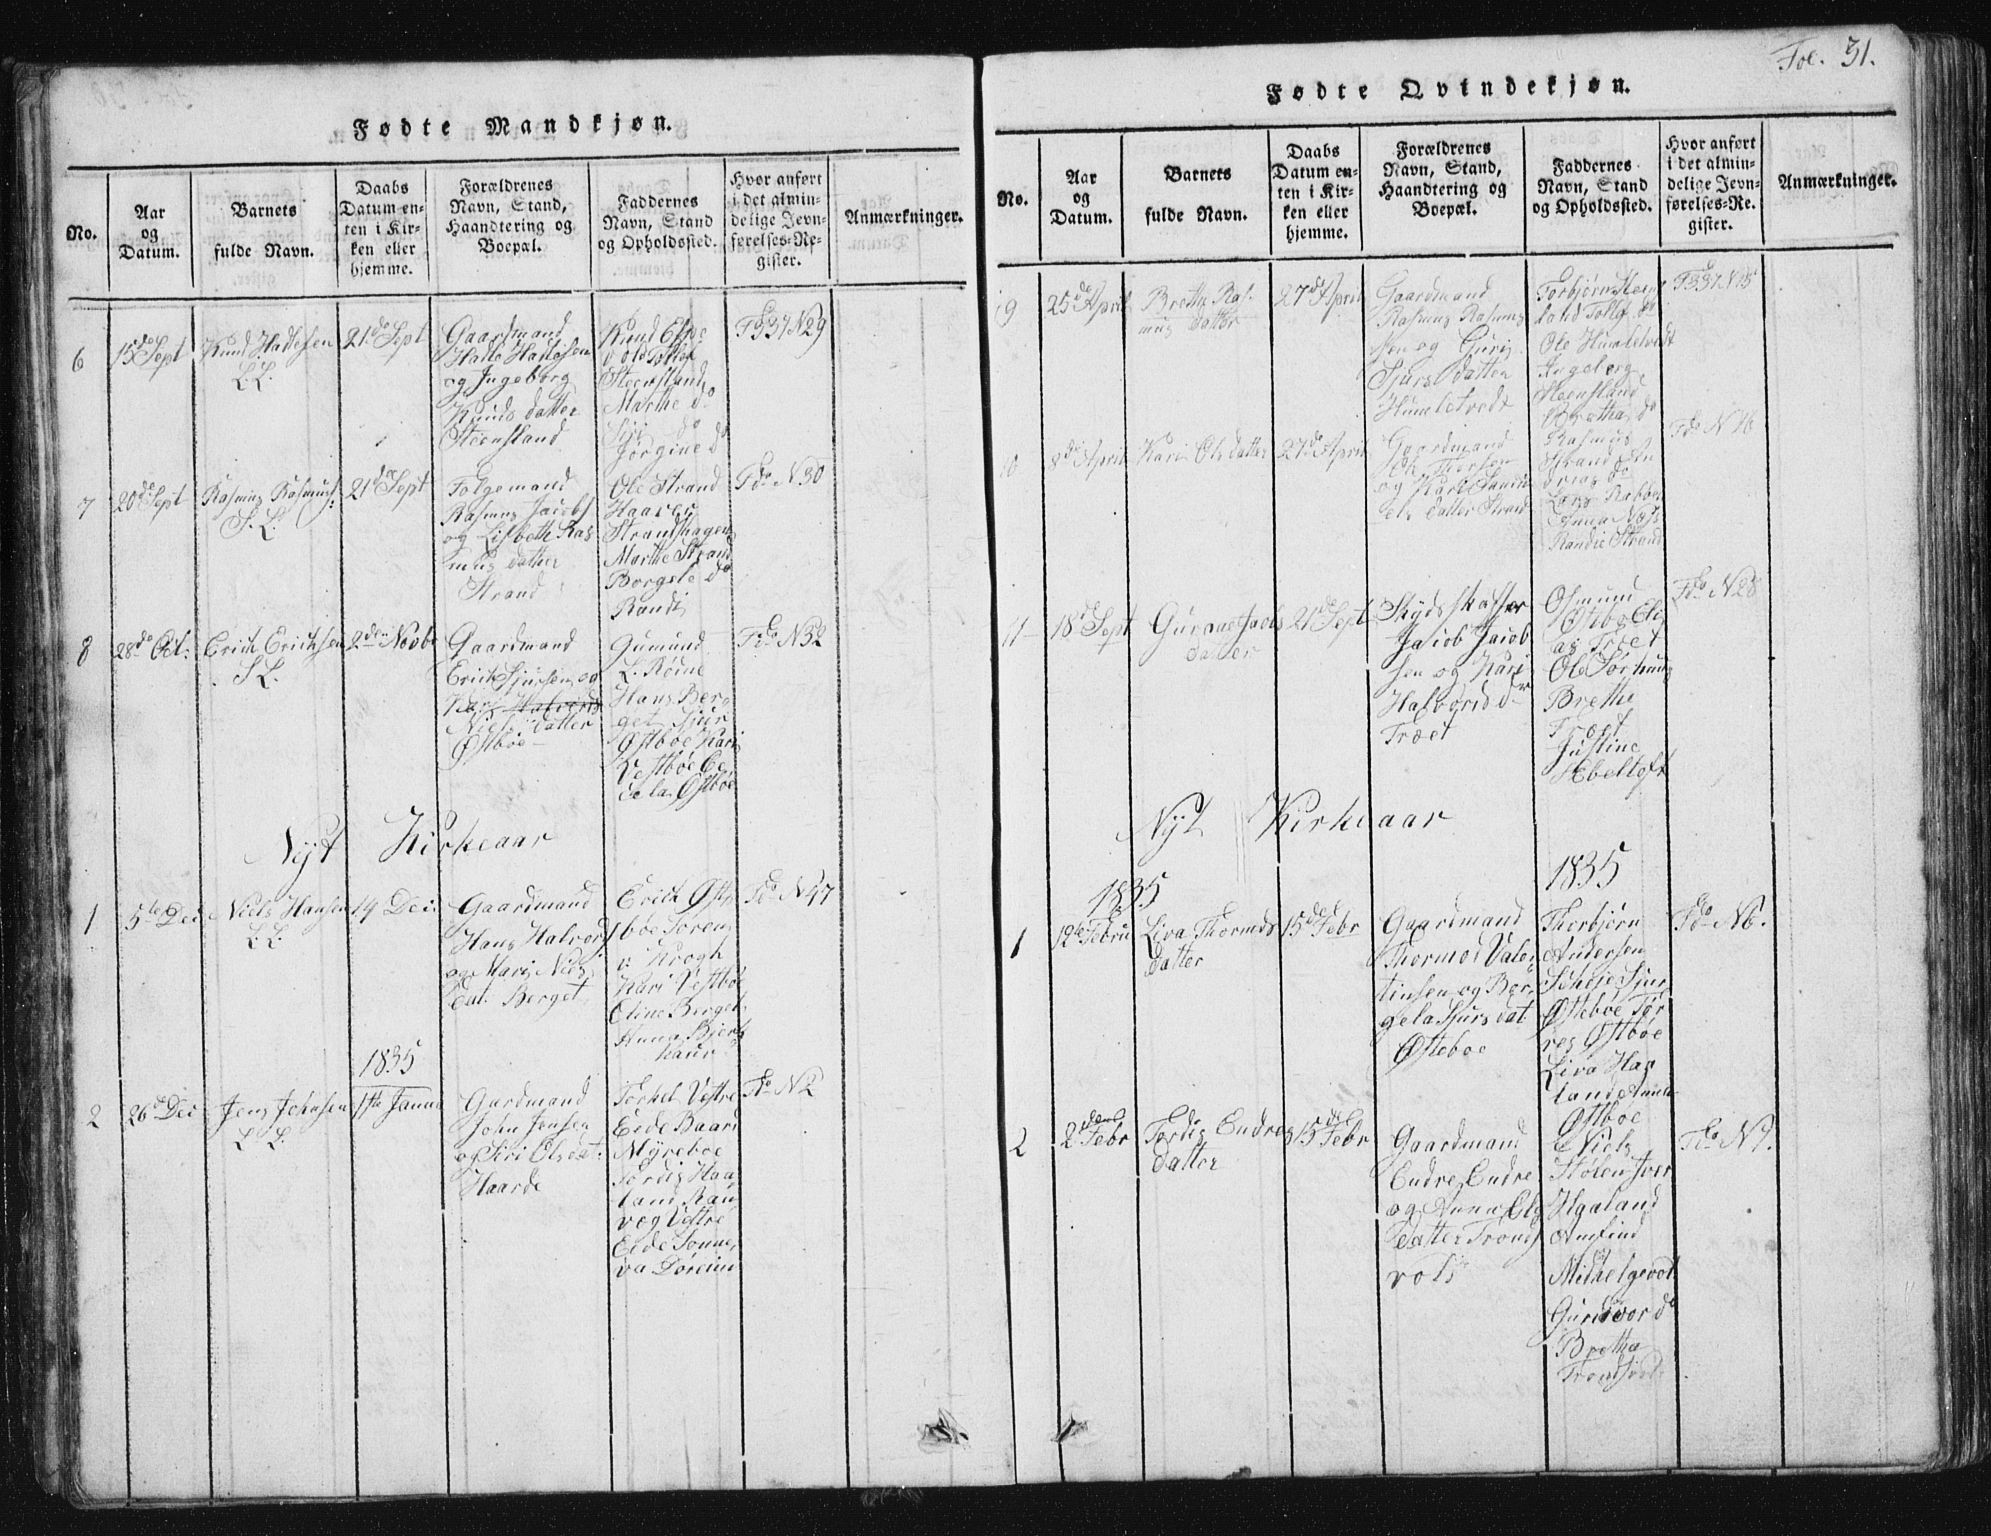 Fol. 31.
Fødte Mandkjøn.
No.
Aar
og
Datum.
Barnets
fulde Navn.
Daabs
Datum en-
ten i Kir-
ken eller
hjemme.
Forældrenes
Navn, Stand,
Haandtering og
Boepæl.
Faddernes
Navn, Stand
og Opholdssted.
Hvor anført
i det almin-
delige Jevn-
førelses-Re-
gister.
Anmærkninger.
6
15de Sept
Knud Hallesen
L.L.
21de Sept
Gaardmand
Halle Hallesen
og Ingeborg
Knuds datter
Steensland
Knud
Steensland
Marthe do
Siri do
Jorgine do
Fo 337 N29
7
20de Sept
Rasmus Rasmus:
S.L.
21de Sept
Folgemand
Rasmus Jacobs
og Lisbeth Ras
mus datter
Strand
Ole Strand
Haaver
Strandshagen
Marthe Strand
Borgele do
Randi
Fdo N30
8
28de Oct:
Erich Erichsen
S.L.
2den Novb
Gaardmand
Erich Sjursen og
Kari Halvords
Niels datter
Østbøe
Gumund
L. Røine
Hans Ber
get Sjur
Østbøe Kari
Vestbøe Ce
dela Østbøe
Fdo N32
Nyt Kirkeaar
1
5te Dec
Niels Hansen
L.L.
14 Dec:
Gaardmand
Hans Halvor
og Maris Niels
Dat. Berget
Erich Øst
bøe Søren
v: Krogh
Kari Vestbøe
Eline Berget
Anna Bjerk
haug
Fdo N47
1835
2
26de Dec
Jens Johnsen
L.L.
1ste Janua
Gardmand
John Jensen
og Siri Olsdat:
Haarde
Torkel Vestre
Eide Baard
Myreboe
Tordis Haa
land Ran
veg Vestre
Eide Sonne
va Døreim
Fdo N2
Fødte Qvindekjøn.
No.
Aar
og
Datum.
Barnets
fulde Navn.
Daabs
Datum en-
ten i Kir-
ken eller
hjemme.
Forældrenes
Navn, Stand,
Haandtering og
Boepæl.
Faddernes
Navn, Stand
og Opholdssted.
Hvor anført
i det almin-
delige Jevn-
førelses-Re-
gister.
Anmærkninger.
9
25de April
Brethe Ras-
mus datter
27de April
Gaardmand
Rasmus Rasmus
sen og Guri
Sjurs datter
Humletvedt
Torbjørn Steens
land
Ole Humletvedt
Ingeborg
Steensland
Bretha do
Fo 337 N15
10
8de April
Kari Ols datter
27de April
Gaardmand
Ole Thorsen
og Kari
datter Strand
Rasmus
Strand An
drias do
Lars Rabben
Anna Næs
Randie Strand
Fdo N16
11
18de Sept
Gurane Jacobs
datter
21de Sept
Skydsskaffer
Jacob Jacob
sen og Kari
Halvords dr
Træet
Osmund
Østbø
as Træet
Ole Sørhuus
Brethe
Træet
Justine
Ebeltoft
Fdo N28
Nyt Kirkeaar
1835
1835
1
12te Febru
Liva Thormods
datter
15de Febr
Gaardmand
Thormod Valen
tinsen og Bor
gela Sjurs dat
Østeboe
Thorbjørn
Andersen
Scheje Sjur
Østeboe Tor
res Østboe
Liva Haa
land Anna
Østboe
Fdo N6.
2
2den Febr
Tordis Endres
datter
15de Febr
Gaardmand
Endre Endre
og Anna Els
datter Trond
vold
Niels
Stølen Iver
Haaland
Arnfind
Mithelgerod
Gurdvor do
Bretha
Fdo N9.